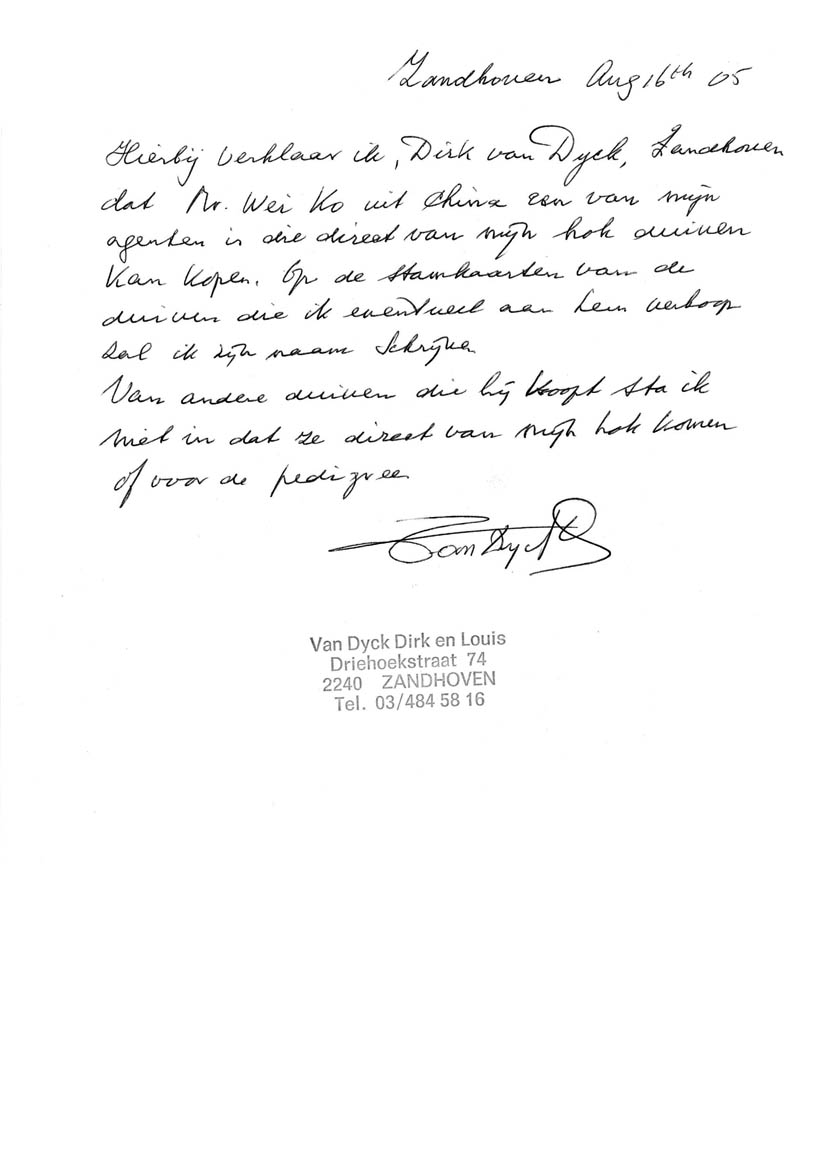 Zandhoven Aug 16th 05
Hierbij verklaar ik, Dirk van Dyck, Zandhoven
dat Mr. Wei Ko uit China een van mijn
agenten is die direct van mijn hok duiven
kan kopen. Op de stamkaarten van de
duiven die ik eventueel aan hem verkoop
zal ik zijn naam schrijven
Van andere duiven die hij koopt sta ik
niet in dat ze direct van mijn hok komen
of voor de pedigree
Van Dyck D
Van Dyck Dirk en Louis
Driehoekstraat 74
2240 ZANDHOVEN
Tel. 03/484 58 16